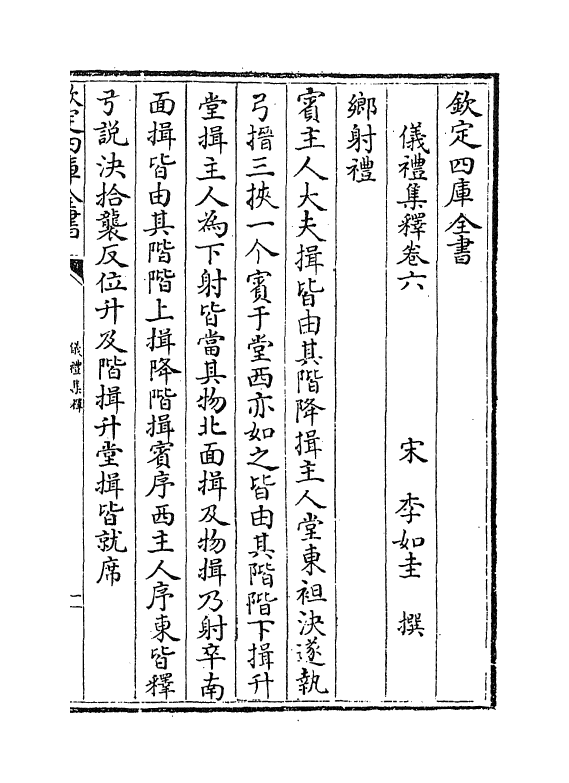 欽定四庫全書
儀禮集釋卷六
宋 李如圭 撰
鄉射禮
賓主人大夫揖皆由其階降揖主人堂東袒決遂執
弓搢三挾一个賓于堂西亦如之皆由其階階下揖升
堂揖主人為下射皆當其物北面揖及物揖乃射卒南
面揖皆由其階階上揖降階揖賓序西主人序東皆釋
弓說決拾襲反位升及階揖升堂揖皆就席
欽定四庫全書
儀禮集釋
一